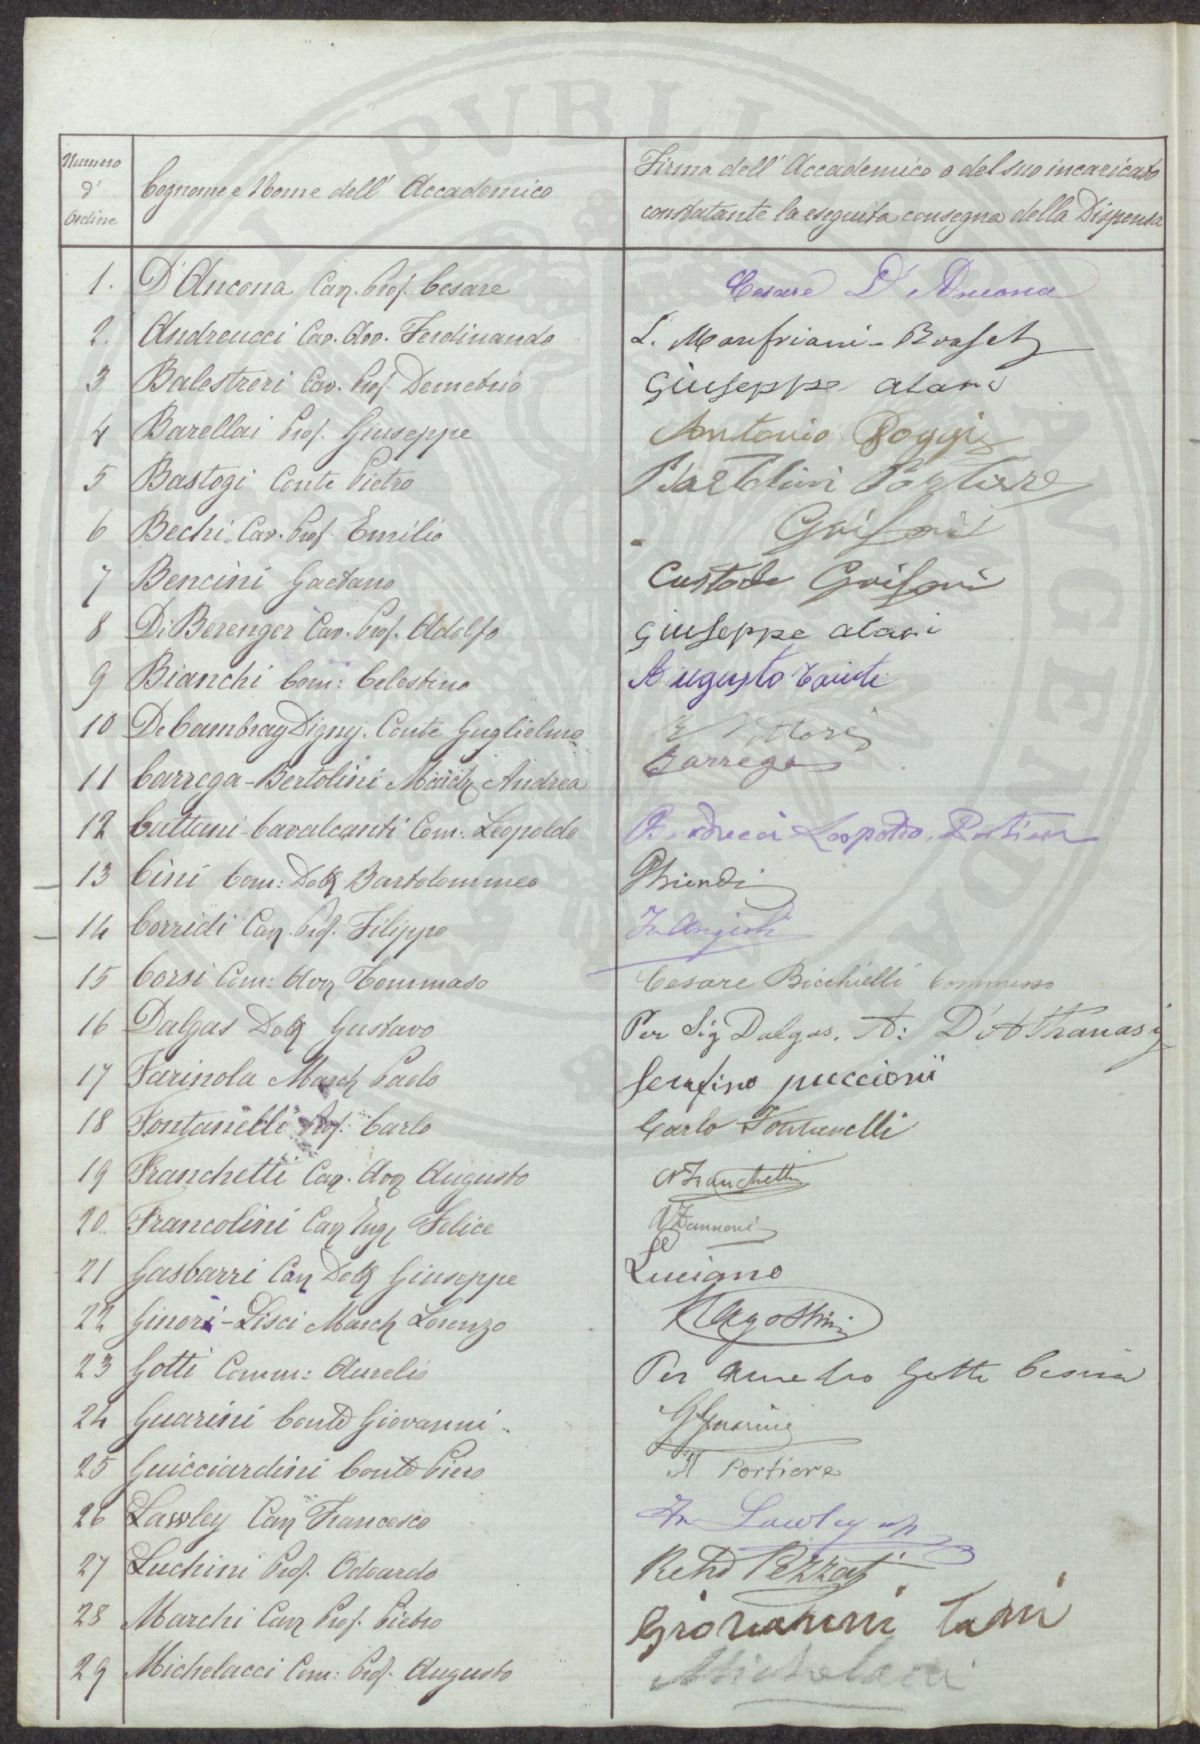 Numero d' Ordine
Cognome e Nome dell' Accademico
Firma dell' Accademico o del suo incaricato
constatante la eseguita consegna della Dispensa
1. D'Ancona Cav. Prof. Cesare Cesare D'Ancona
2. Andreucci Cav. Avv. Ferdinando L. Manfriani
3 Balestreri Cav. Prof. Demetrio Giuseppe alani
4 Barellai Prof. Giuseppe Antonio Poggi
5 Bastogi Conte Pietro Bartolini Portiere
6 Bechi Cav. Prof. Emilio Grifoni
7 Bencini Gaetano Custode Grifoni
8 Di Berenger Cav. Prof. Adolfo Giuseppe alani
9 Bianchi Com: Celestino Augusto
10 De Cambray Digny. Conte Guglielmo Vittori
11 Carrega-Bertolini March Andrea Carrega
12 Cattani-Cavalcanti Com: Leopoldo Leopoldo. Portiere
13 Cini Com: Dott Bartolommeo
14 Corridi Cav. Prof. Filippo
15 Corsi Com: Avv Tommaso Cesare Bicchielli Commesso
16 Dalgas Dott Gustavo Per Sig Dalgas. A: D'Attanasi
17 Farinola March Paolo Serafino puccioni
18 Fontanelli Prof. Carlo Carlo Fontanelli
19 Franchetti Cav. Avv Augusto A Franchetti
20. Francolini Cav Ing Felice Zannoni
21 Gasbarri Cav Dott Giuseppe Luciano
22 Ginori-Lisci March Lorenzo Agostini
23 Gotti Comm: Aurelio Per Gotti
24 Guarini Conte Giovanni GGuarini
25 Guicciardini Conte Piero Il Portiere
26 Lawley Cav Francesco Fr Lawley
27 Luchini Prof. Odoardo Pezzati
28 Marchi Cav Prof. Pietro Giovanni
29 Michelacci Com: Prof. Augusto Michelacci